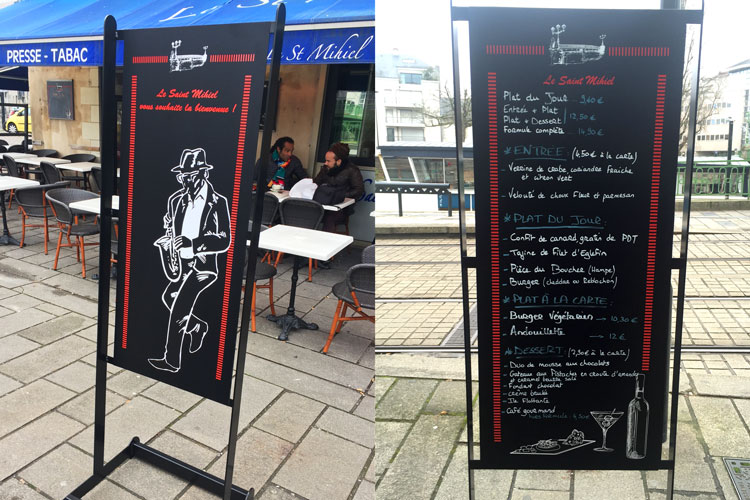 Le St Mihiel
PRESSE - TABAC
Le Saint Mihiel
vous souhaite la bienvenue !
Le Saint Mihiel
Plat du Jour 9,60 €
Entrée + Plat
Plat + Dessert 12,50 €
Formule complète 14,90 €
* ENTREE : (4,50 € à la carte)
- Verrine de crabe coriandre Fraîche
et citron vert
- Velouté de choux Fleur et parmesan
* PLAT DU JOUR :
- Confit de canard, gratin de PDT
- Tagine de Filet d'Eglefin
- Pièce du Boucher (Hampe)
- Burger (cheddar ou Reblochon)
* PLAT À LA CARTE :
- Burger Végétarien → 10,30 €
- Andouillette → 12 €
* DESSERT : (7,30 € à la carte)
- Duo de mousse aux chocolats
- Gateaux aux Pistaches en croute d'amande
et caramel beurre salé
- Fondant chocolat
- Crème brulée
- Ile Flottante
- Café gourmand